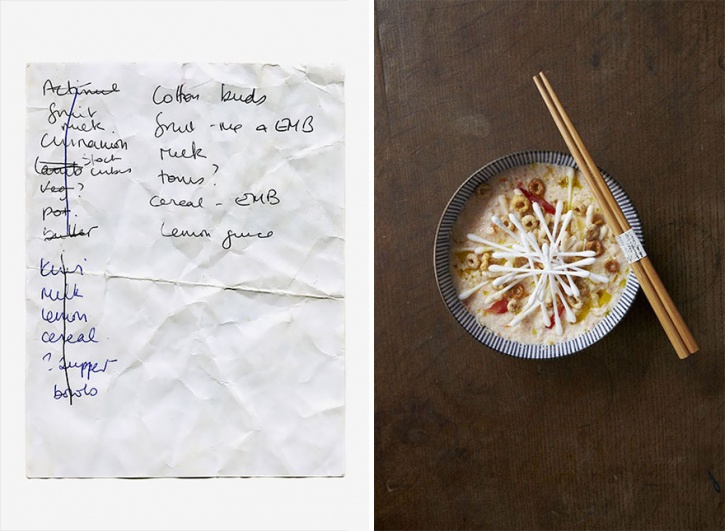 Actimel
fruit
milk.
Cinnamon
lamb stock
cubes
veg?
pot.
butter
kiwi
milk
lemon
cereal
? supper
bowls
Cotton buds
fruit - me & EMB
milk
toms?
cereal - EMB
Lemon juice